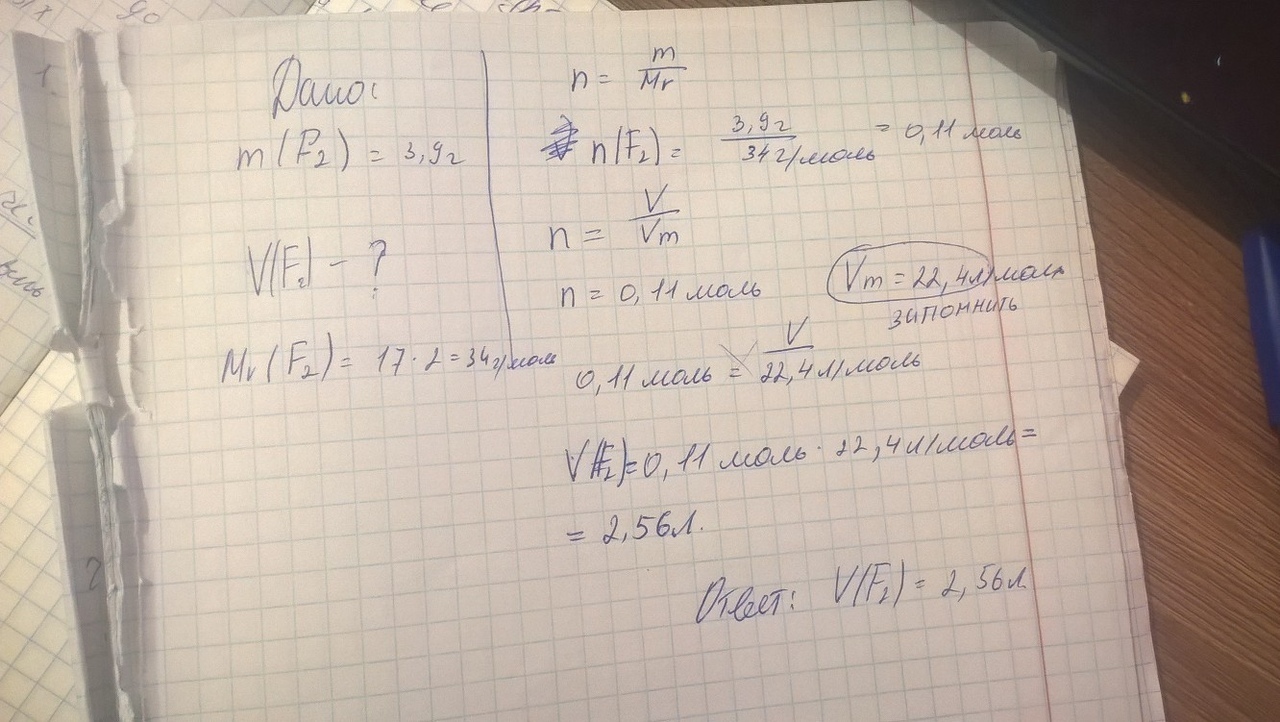 Дано:
m(F₂) = 3,9г
V(F₂) - ?
Mr(F₂) = 17·2=34г/моль
n = m/Mr
n(F₂) = 3,9г/34г/моль = 0,11 моль
n = V/Vm
n = 0,11 моль
Vm = 22,4л/моль
запомнить
0,11 моль = V/22,4л/моль
V(F₂)=0,11 моль · 22,4л/моль=
= 2,56л.
Ответ: V(F₂) = 2,56л